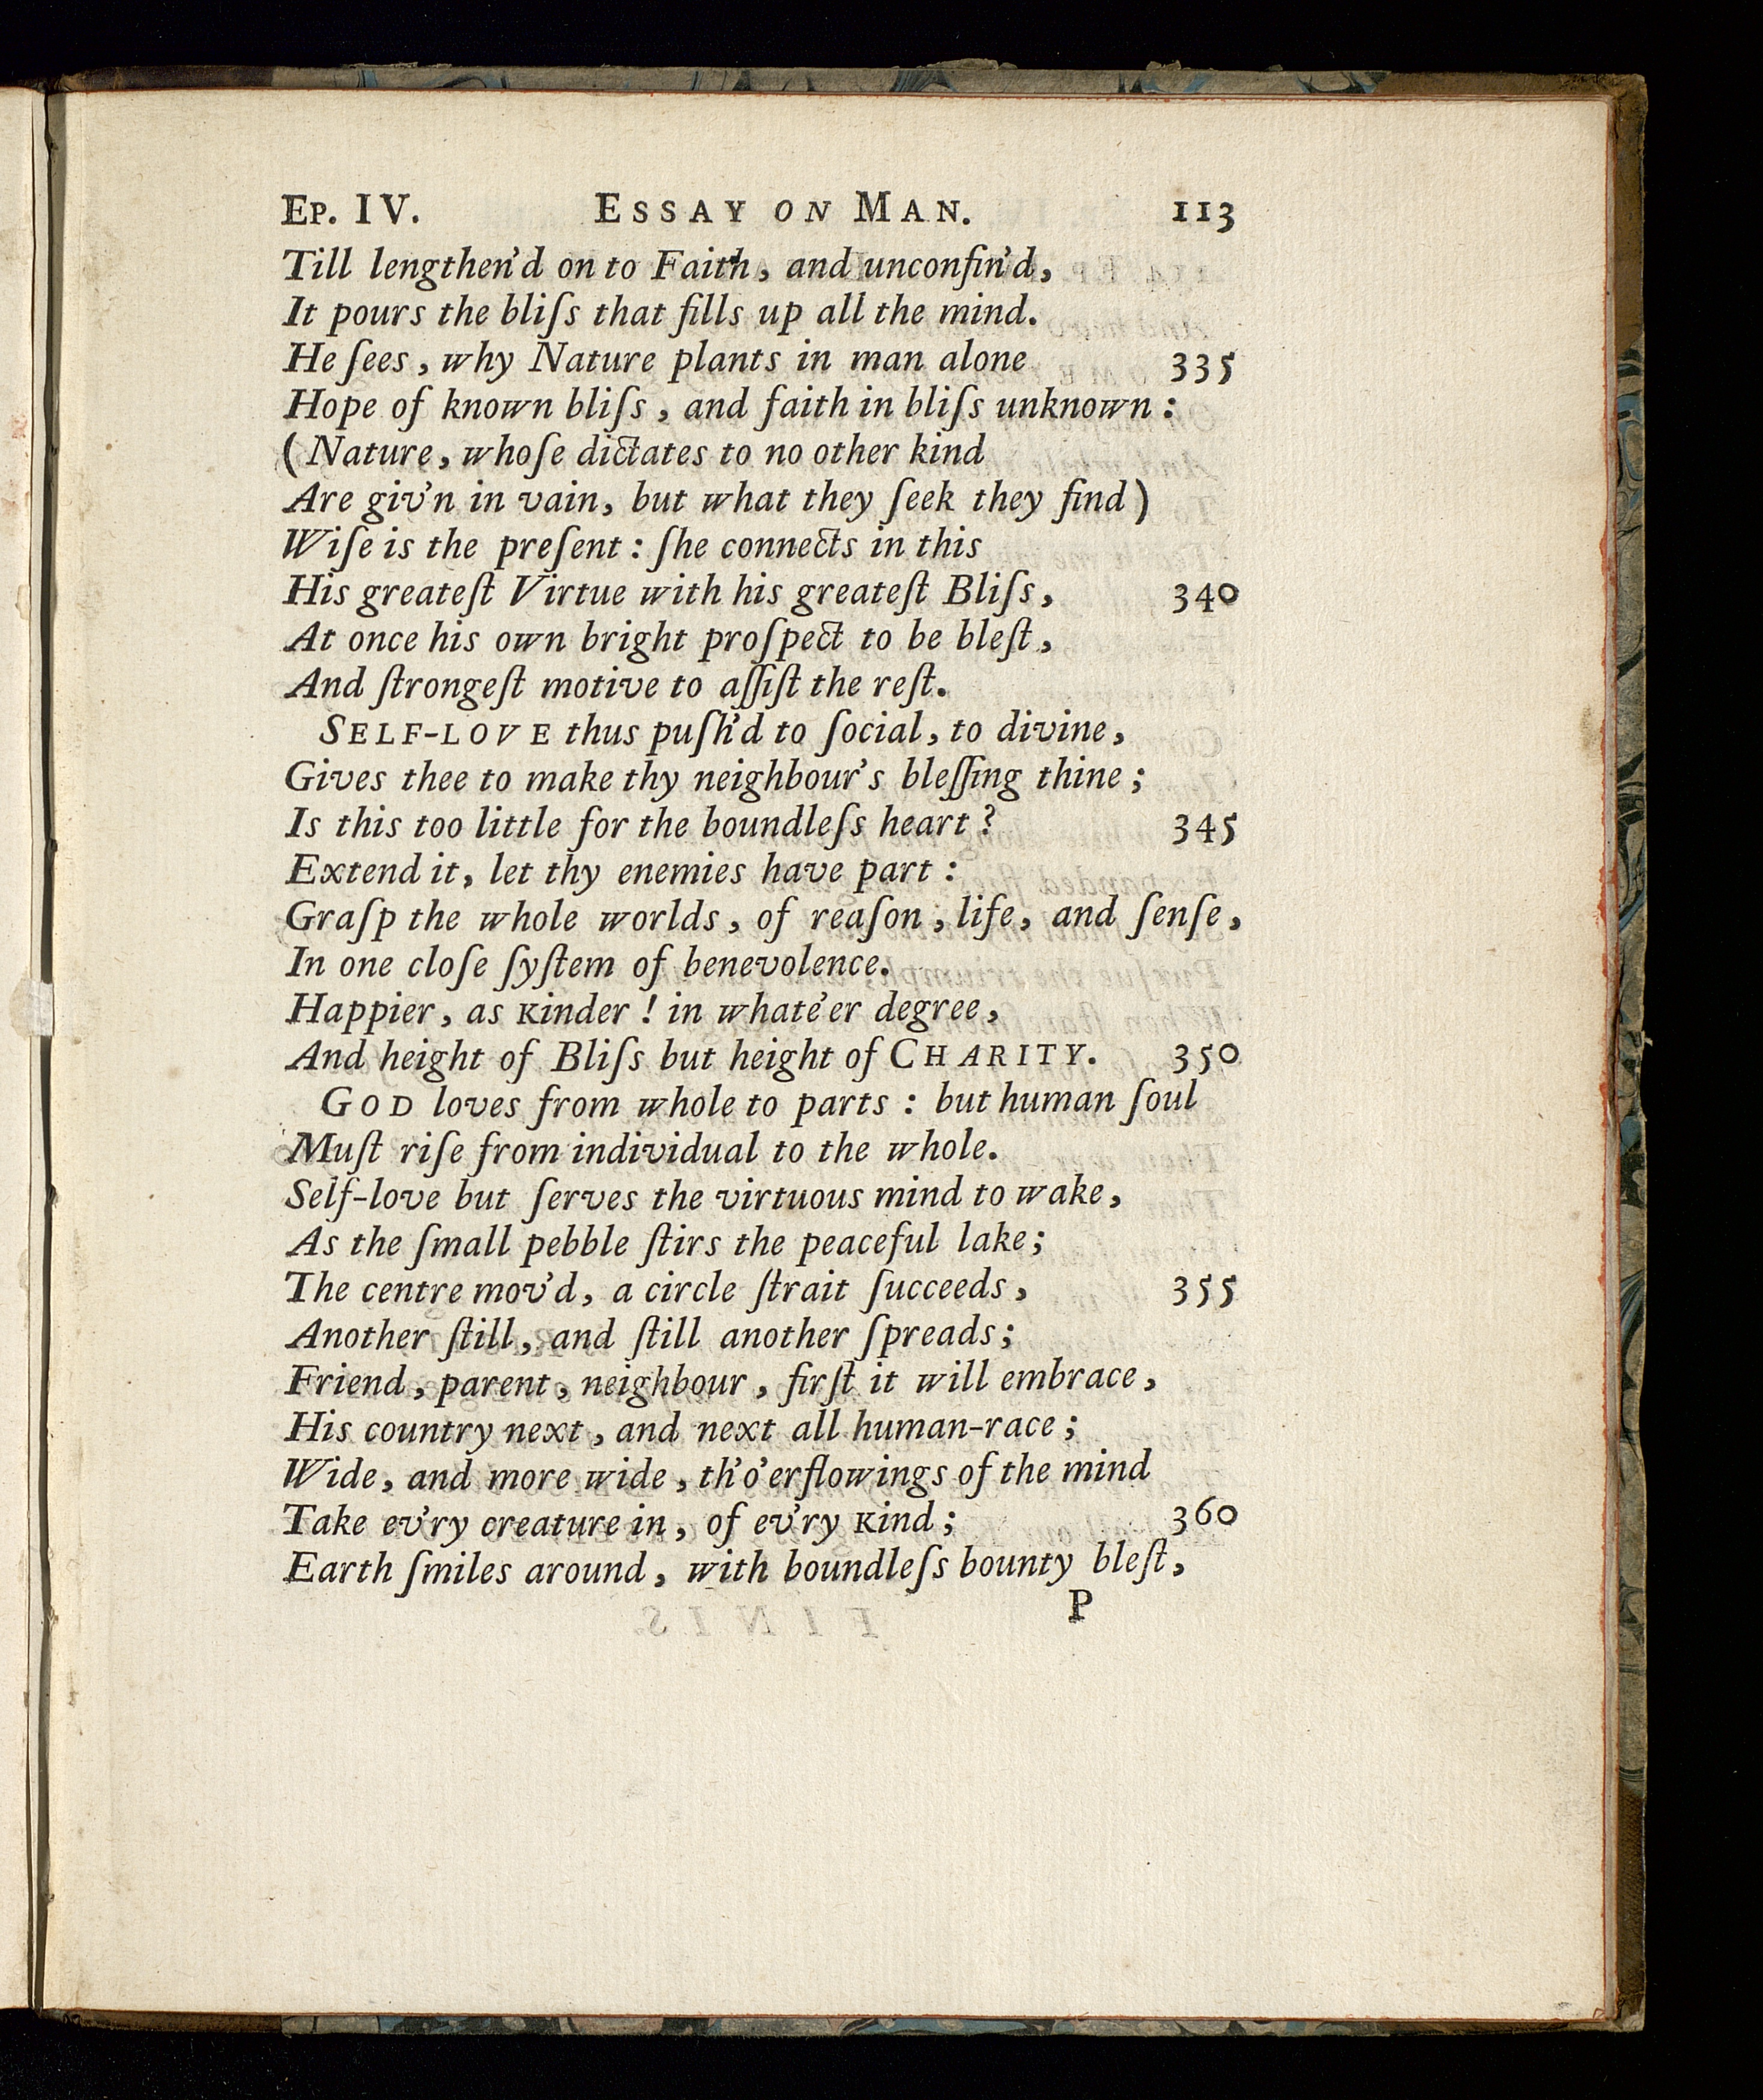 EP. IV. ESSAY ON MAN. 113
Till lengthen'd on to Faith, and unconfin'd,
It pours the bliſs that fills up all the mind.
He ſees, why Nature plants in man alone 335
Hope of known bliſs, and faith in bliſs unknown:
(Nature, whoſe dictates to no other kind
Are giv'n in vain, but what they ſeek they find)
Wiſe is the preſent: ſhe connects in this
His greateſt Virtue with his greateſt Bliſs, 340
At once his own bright proſpect to be bleſt,
And ſtrongeſt motive to aſſiſt the reſt.
SELF-LOVE thus puſh'd to ſocial, to divine,
Gives thee to make thy neighbour's bleſſing thine;
Is this too little for the boundleſs heart? 345
Extend it, let thy enemies have part:
Graſp the whole worlds, of reaſon, life, and ſenſe,
In one cloſe ſyſtem of benevolence.
Happier, as kinder! in whate'er degree,
And height of Bliſs but height of CHARITY. 350
GOD loves from whole to parts: but human ſoul
Muſt riſe from individual to the whole.
Self-love but ſerves the virtuous mind to wake,
As the ſmall pebble ſtirs the peaceful lake;
The centre mov'd, a circle ſtrait ſucceeds, 355
Another ſtill, and ſtill another ſpreads;
Friend, parent, neighbour, firſt it will embrace,
His country next, and next all human-race;
Wide, and more wide, th'o'erflowings of the mind
Take ev'ry creature in, of ev'ry kind; 360
Earth ſmiles around, with boundleſs bounty bleſt,
P